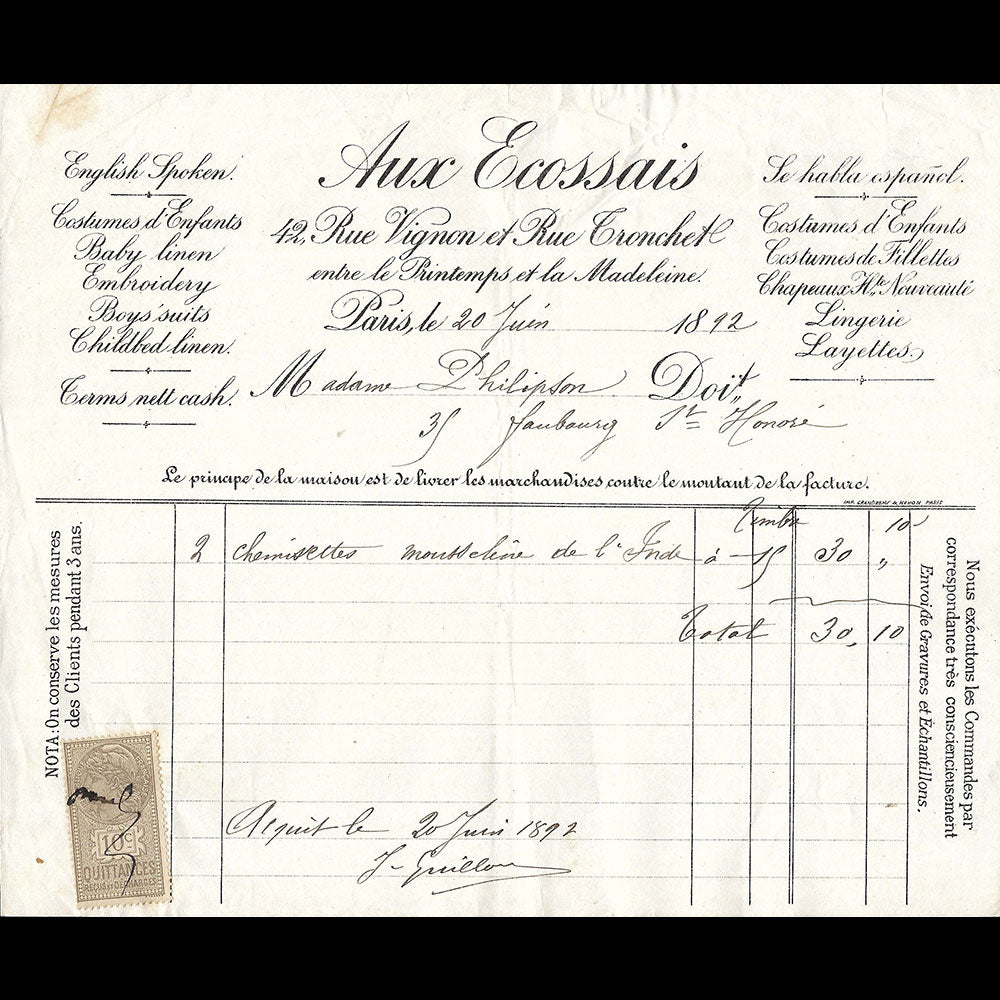 Aux Ecossais
42, Rue Vignon et Rue Tronchet
entre le Printemps et la Madeleine.
English Spoken.
Costumes d'Enfants
Baby linen
Embroidery
Boys' suits
Childbed linen.
Terms nett cash.
Se habla español.
Costumes d'Enfants
Costumes de Fillettes
Chapeaux Hte Nouveauté
Lingerie
Layettes
Paris, le 20 Juin 1892
Madame Philipson Doit
35 faubourg St Honoré
Le principe de la maison est de livrer les marchandises contre le montant de la facture.
PARIS
Timbre 10
2 chemisettes mousseline de l'Inde à 15 30 "
Total 30, 10
Acquit le 20 Juin 1892
J. Guillou
NOTA: On conserve les mesures
des Clients pendant 3 ans.
Nous exécutons les Commandes par
correspondance très consciencieusement
Envoi de Gravures et Échantillons.
10c
QUITTANCES
REÇUS ET DÉCHARGES